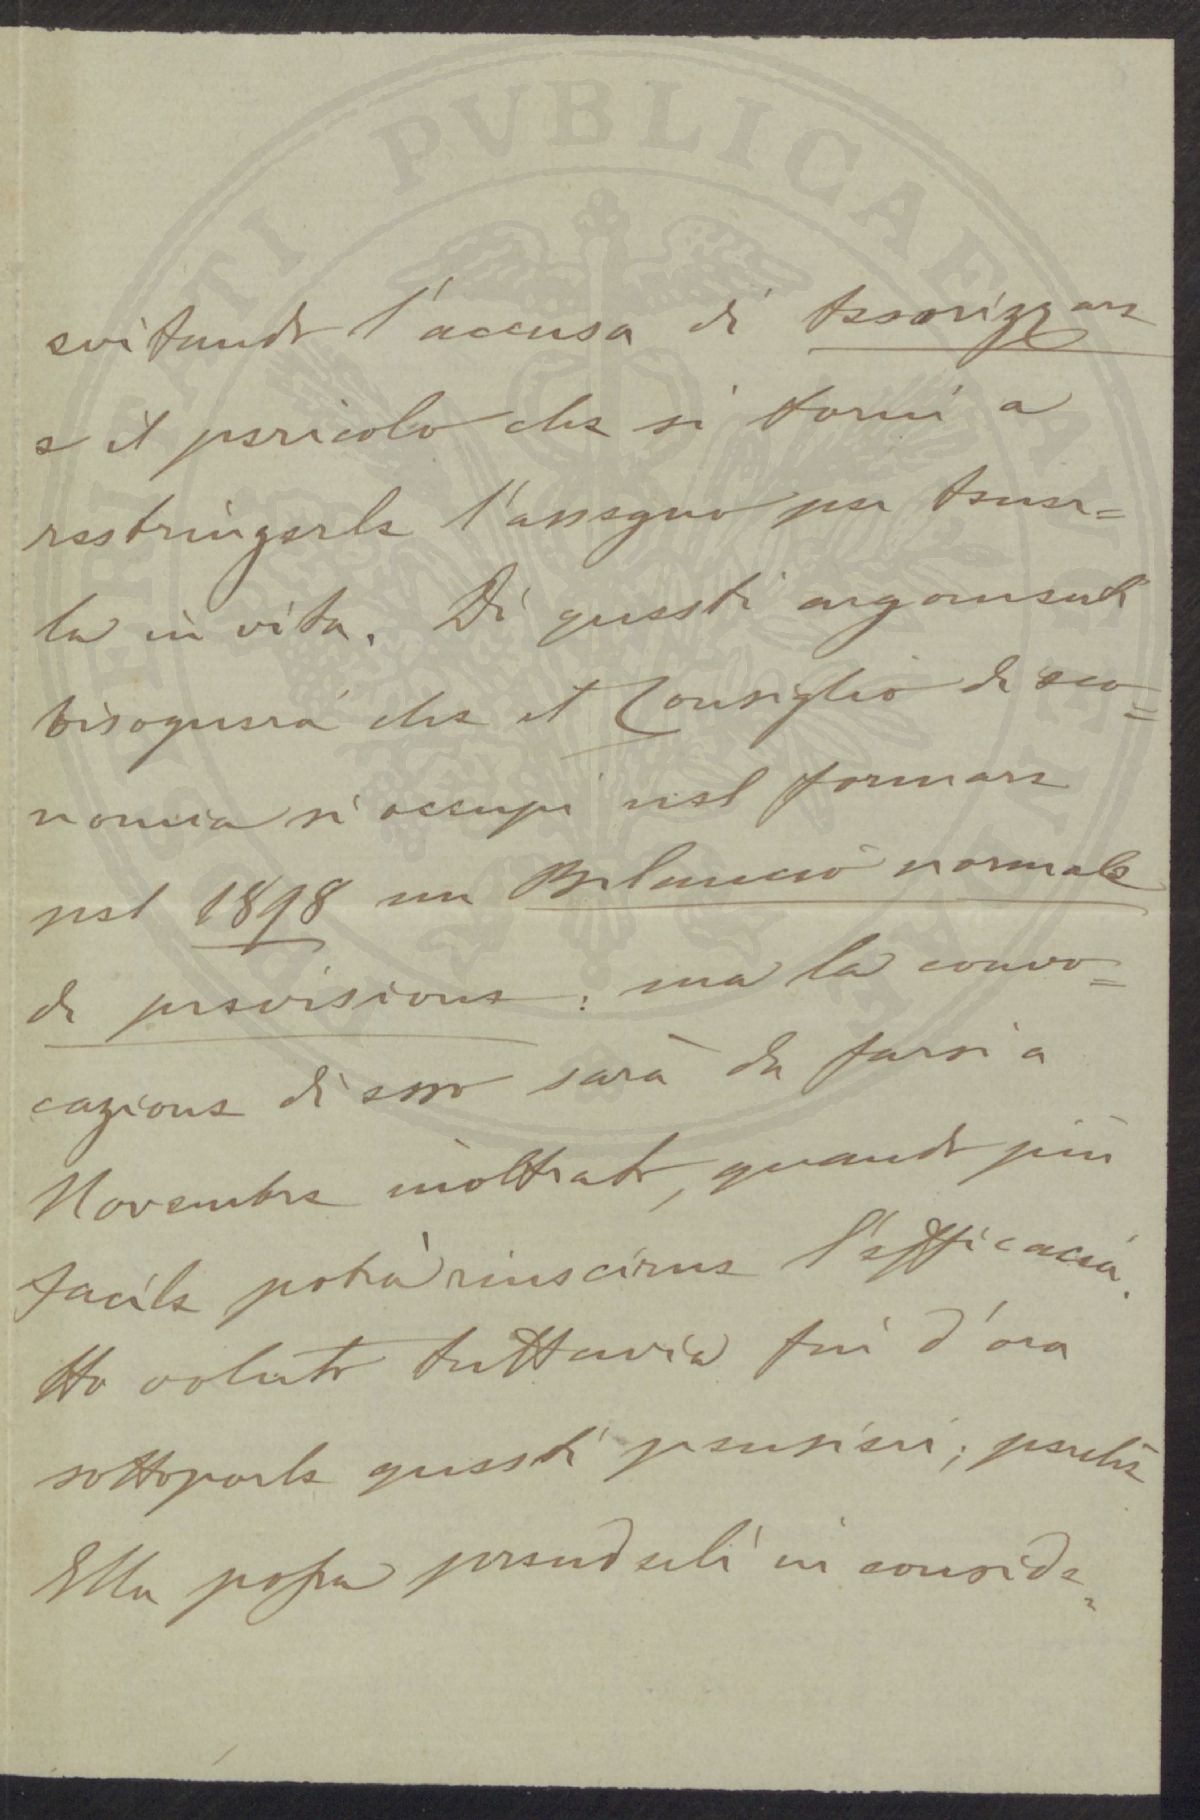 PVBLICAE
evitando l'accusa di tesorizzare
e il pericolo che si torni a
restringerle l'assegno per tener=
la in vita. Di questi argomenti
bisognerà che il Consiglio di eco=
nomia si occupi nel formare
pel 1898 un Bilancio normale
di previsione: ma la convo=
cazione di esso sarà da farsi a
Novembre inoltrato, quando più
facile potrà riuscirne l'efficacia.
Ho voluto tuttavia fin d'ora
sottoporle questi pensieri; perchè
Ella possa prenderli in conside=